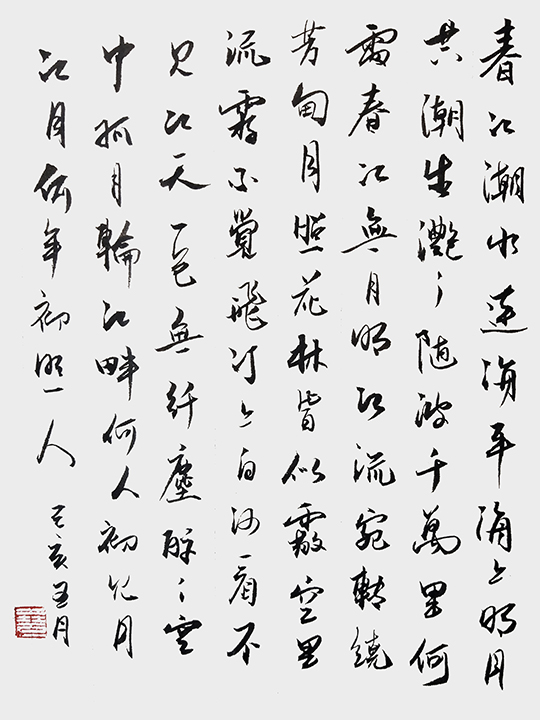 春江潮水連海平海上明月
共潮生灩々随波千萬里何
處春江無月明江流宛轉繞
芳甸月照花林皆似霰空里
流霜不覺飛汀上白沙看不
见江天一色無纤塵皎々空
中孤月輪江畔何人初见月
江月何年初照人
己亥五月